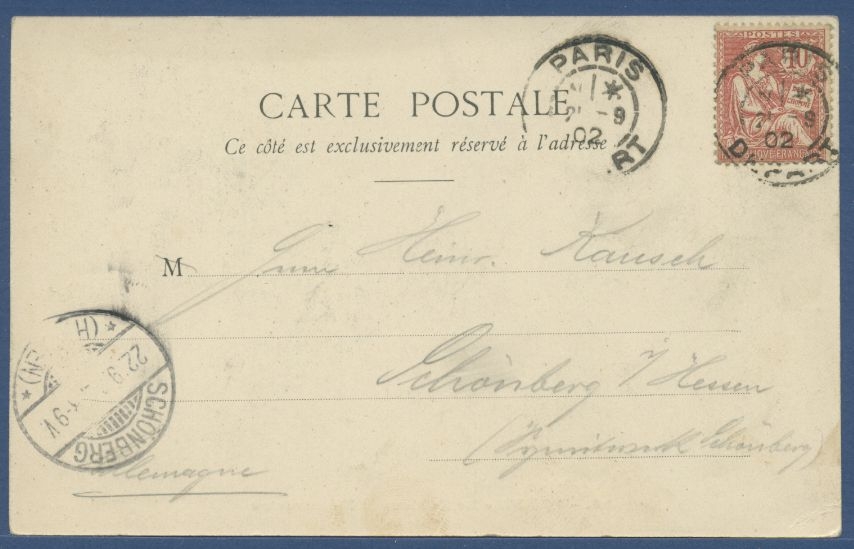 POSTES
10
PARIS
9
02
DÉPART
PARIS
9
02
RT
CARTE POSTALE
Ce côté est exclusivement réservé à l'adresse
M Heinr. Kausch
Schönberg i/Hessen
Schönberg)
22 9
8-9V
SCHÖNBERG
(H
N)
Allemagne